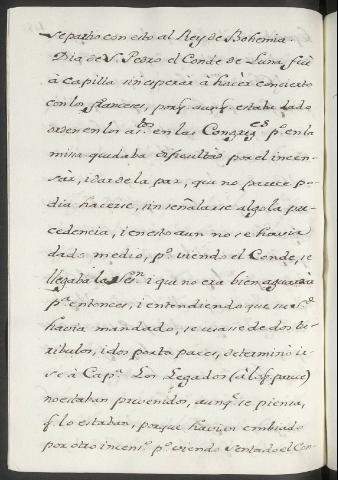 se parho con esto al Rey de Bohemia.
Dia de S. Pedro el Conde de Luna fue
à Capilla sin esperar à hacer concierto
con los franceses, porq. aunq. estaba dado
orden en los as.tos en las Congreg.es pª. en la
missa quedaba dificultad por el incen-
sar, i dar de la paz, que no parece po-
dia hacerse, sin señalarse algo la pre-
cedencia, i en esto aun no se havia
dado medio, pº. viendo el Conde, se
llegaba la Ses.n i que no era bien aguardar
pª. entonces, i entendiendo que su S.d
havia mandado, se usasse de dos tu-
ribulos, i dos porta paces, determinò ir-
se à Cap.ª Los Legados (à lo q. parece)
no estaban prevenidos, aunq. se piensa,
q. lo estaban, porque havian embiado
por otro incens.º pº. viendo sentado el Con-